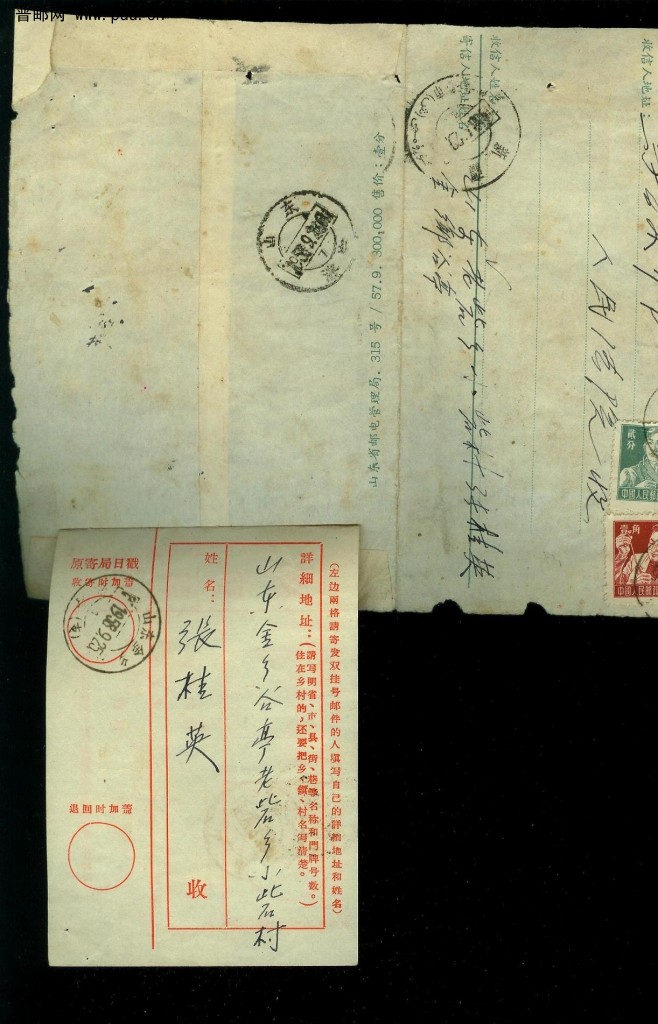 普邮网 www.puu.cn
收信人地址:
人民法院 收
收信人姓名
寄信人地址姓名
金鄉谷亭
山东省邮电管理局. 315 号 / 57.9. 300,000 售价:壹分
山东
贰分
中国人民邮政
壹角
中国人民邮政
(左边兩格請寄发双挂号邮件的人填写自己的詳細地址和姓名)
詳細地址:(請写明省、市、县、街、巷等名称和門牌号数。
住在乡村的,还要把乡、鎮、村名写清楚。)
山东金乡谷亭老砦乡小砦村
姓名:
張桂英
收
原寄局日戳
收寄时加蓋
山东
1958.9.25
退回时加蓋